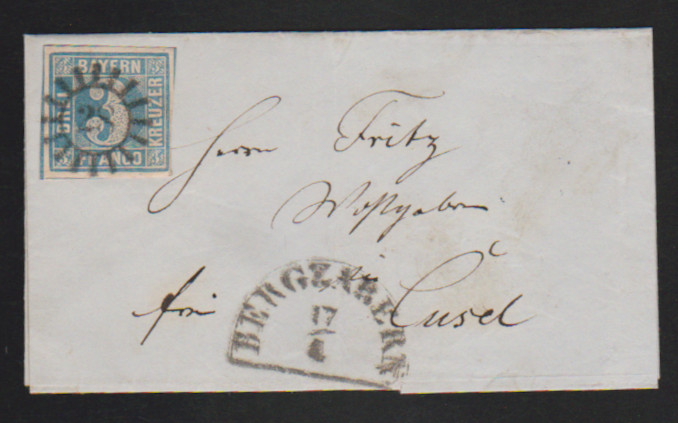 BAYERN
DREI
3
KREUZER
FRANCO
Herrn Fritz
in
frei Cusel
BERGZABERN
17